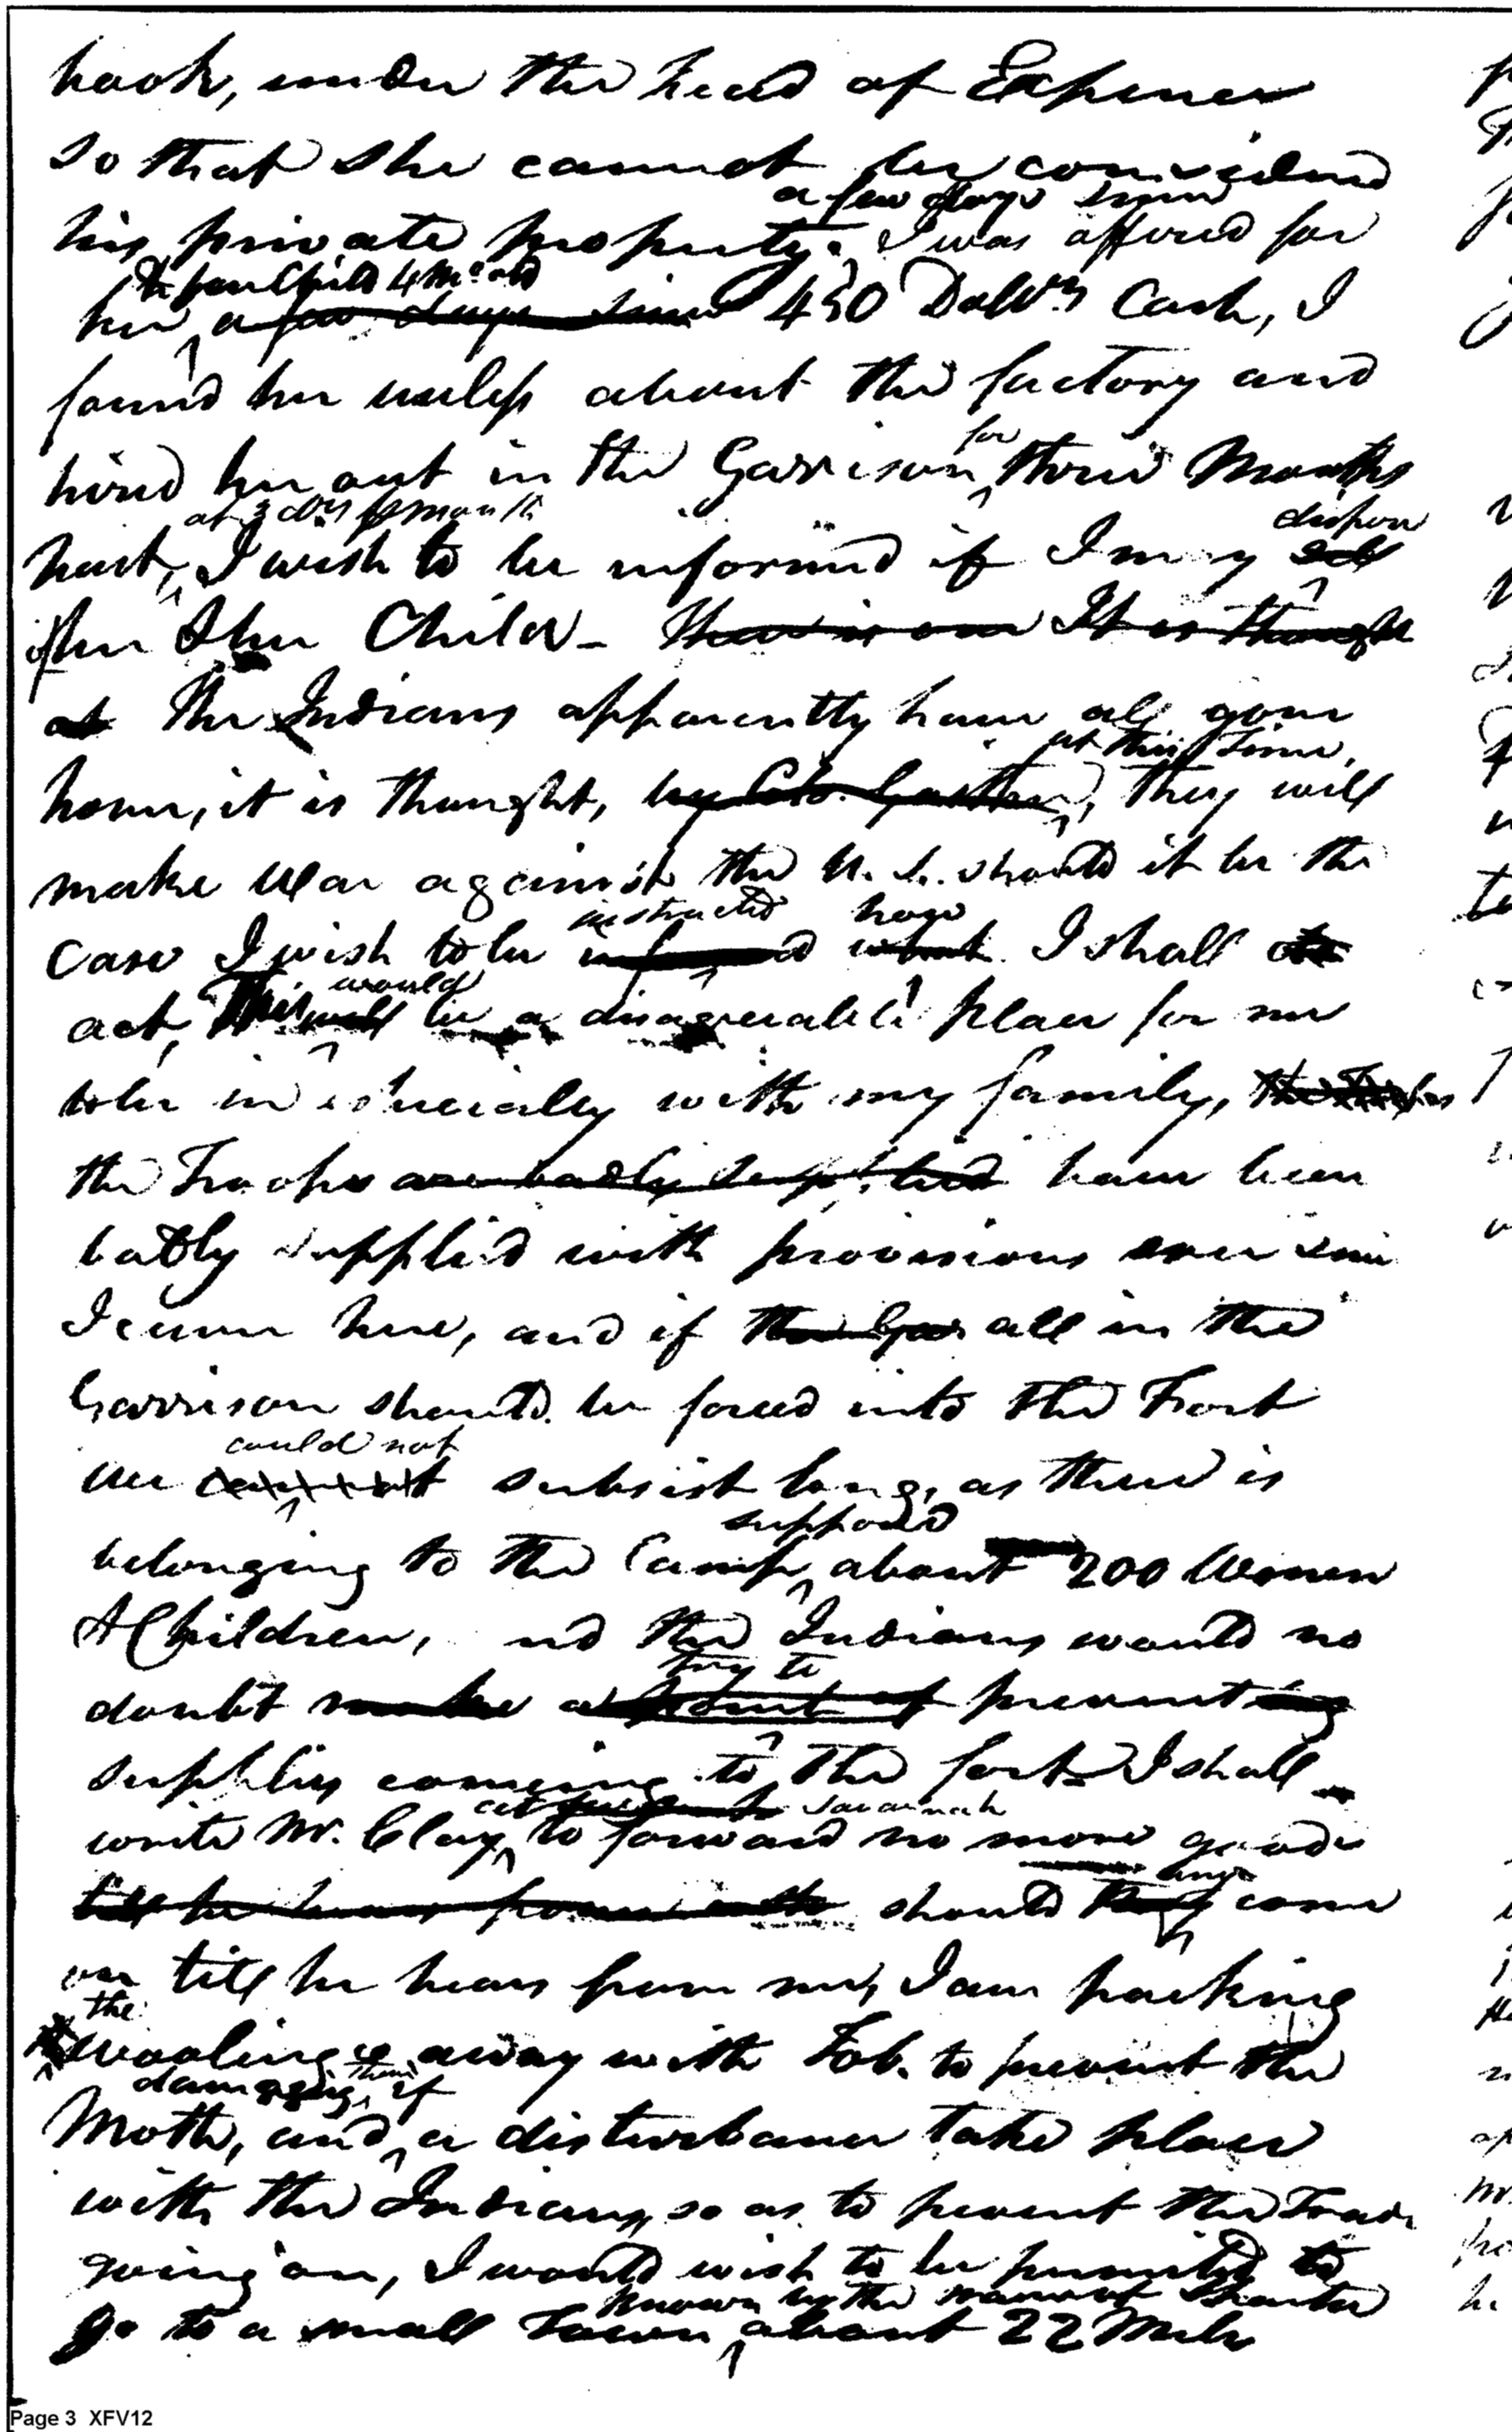 book, under the head of Expences
so that she cannot be considered
a few days since
his private property. I was offered for
& her Child 4 Ms. old
her a few days since 450 Dollrs Cash, I
found her useless about the factory and
for
hired her out in the Garrison three Months
at 3 dolrs pr month dispose
past, I wish to be informed if I may sell
of her & her Child - There is one It is thought
at The Indians apparently have all gone
at this time,
home, it is thought, by Colo. Gaither, they will
make War against the U. S. should it be the
instructed how
Case I wish to be informed what I shall do
would
act, This will be a disagreeable place for me
to be in especially with my family, the Troops
the Troops are badly supplied have been
badly supplied with provisions ever since
I came here, and if the Gar all in the
Garrison should be forced into the Fort
could not
we cannot subsist long, as there is
supposed
belonging to the Camp about 200 Women
& Children, and the Indians would no
try to
doubt make a point of preventing
supplies coming to the fort - I shall
at Savannah
write Mr. Clay to forward no more goods
any
till he hears from me should they come
on till he hears from me, I am packing
the
woolings away with Tob. to prevent the
damaging them, if
Moth, and a disturbance take place
with the Indians, so as to prevent the Trade
going on, I would wish to be permitted to
known by the name of
go to a small Town about 22 Miles
Page 3 XFV12